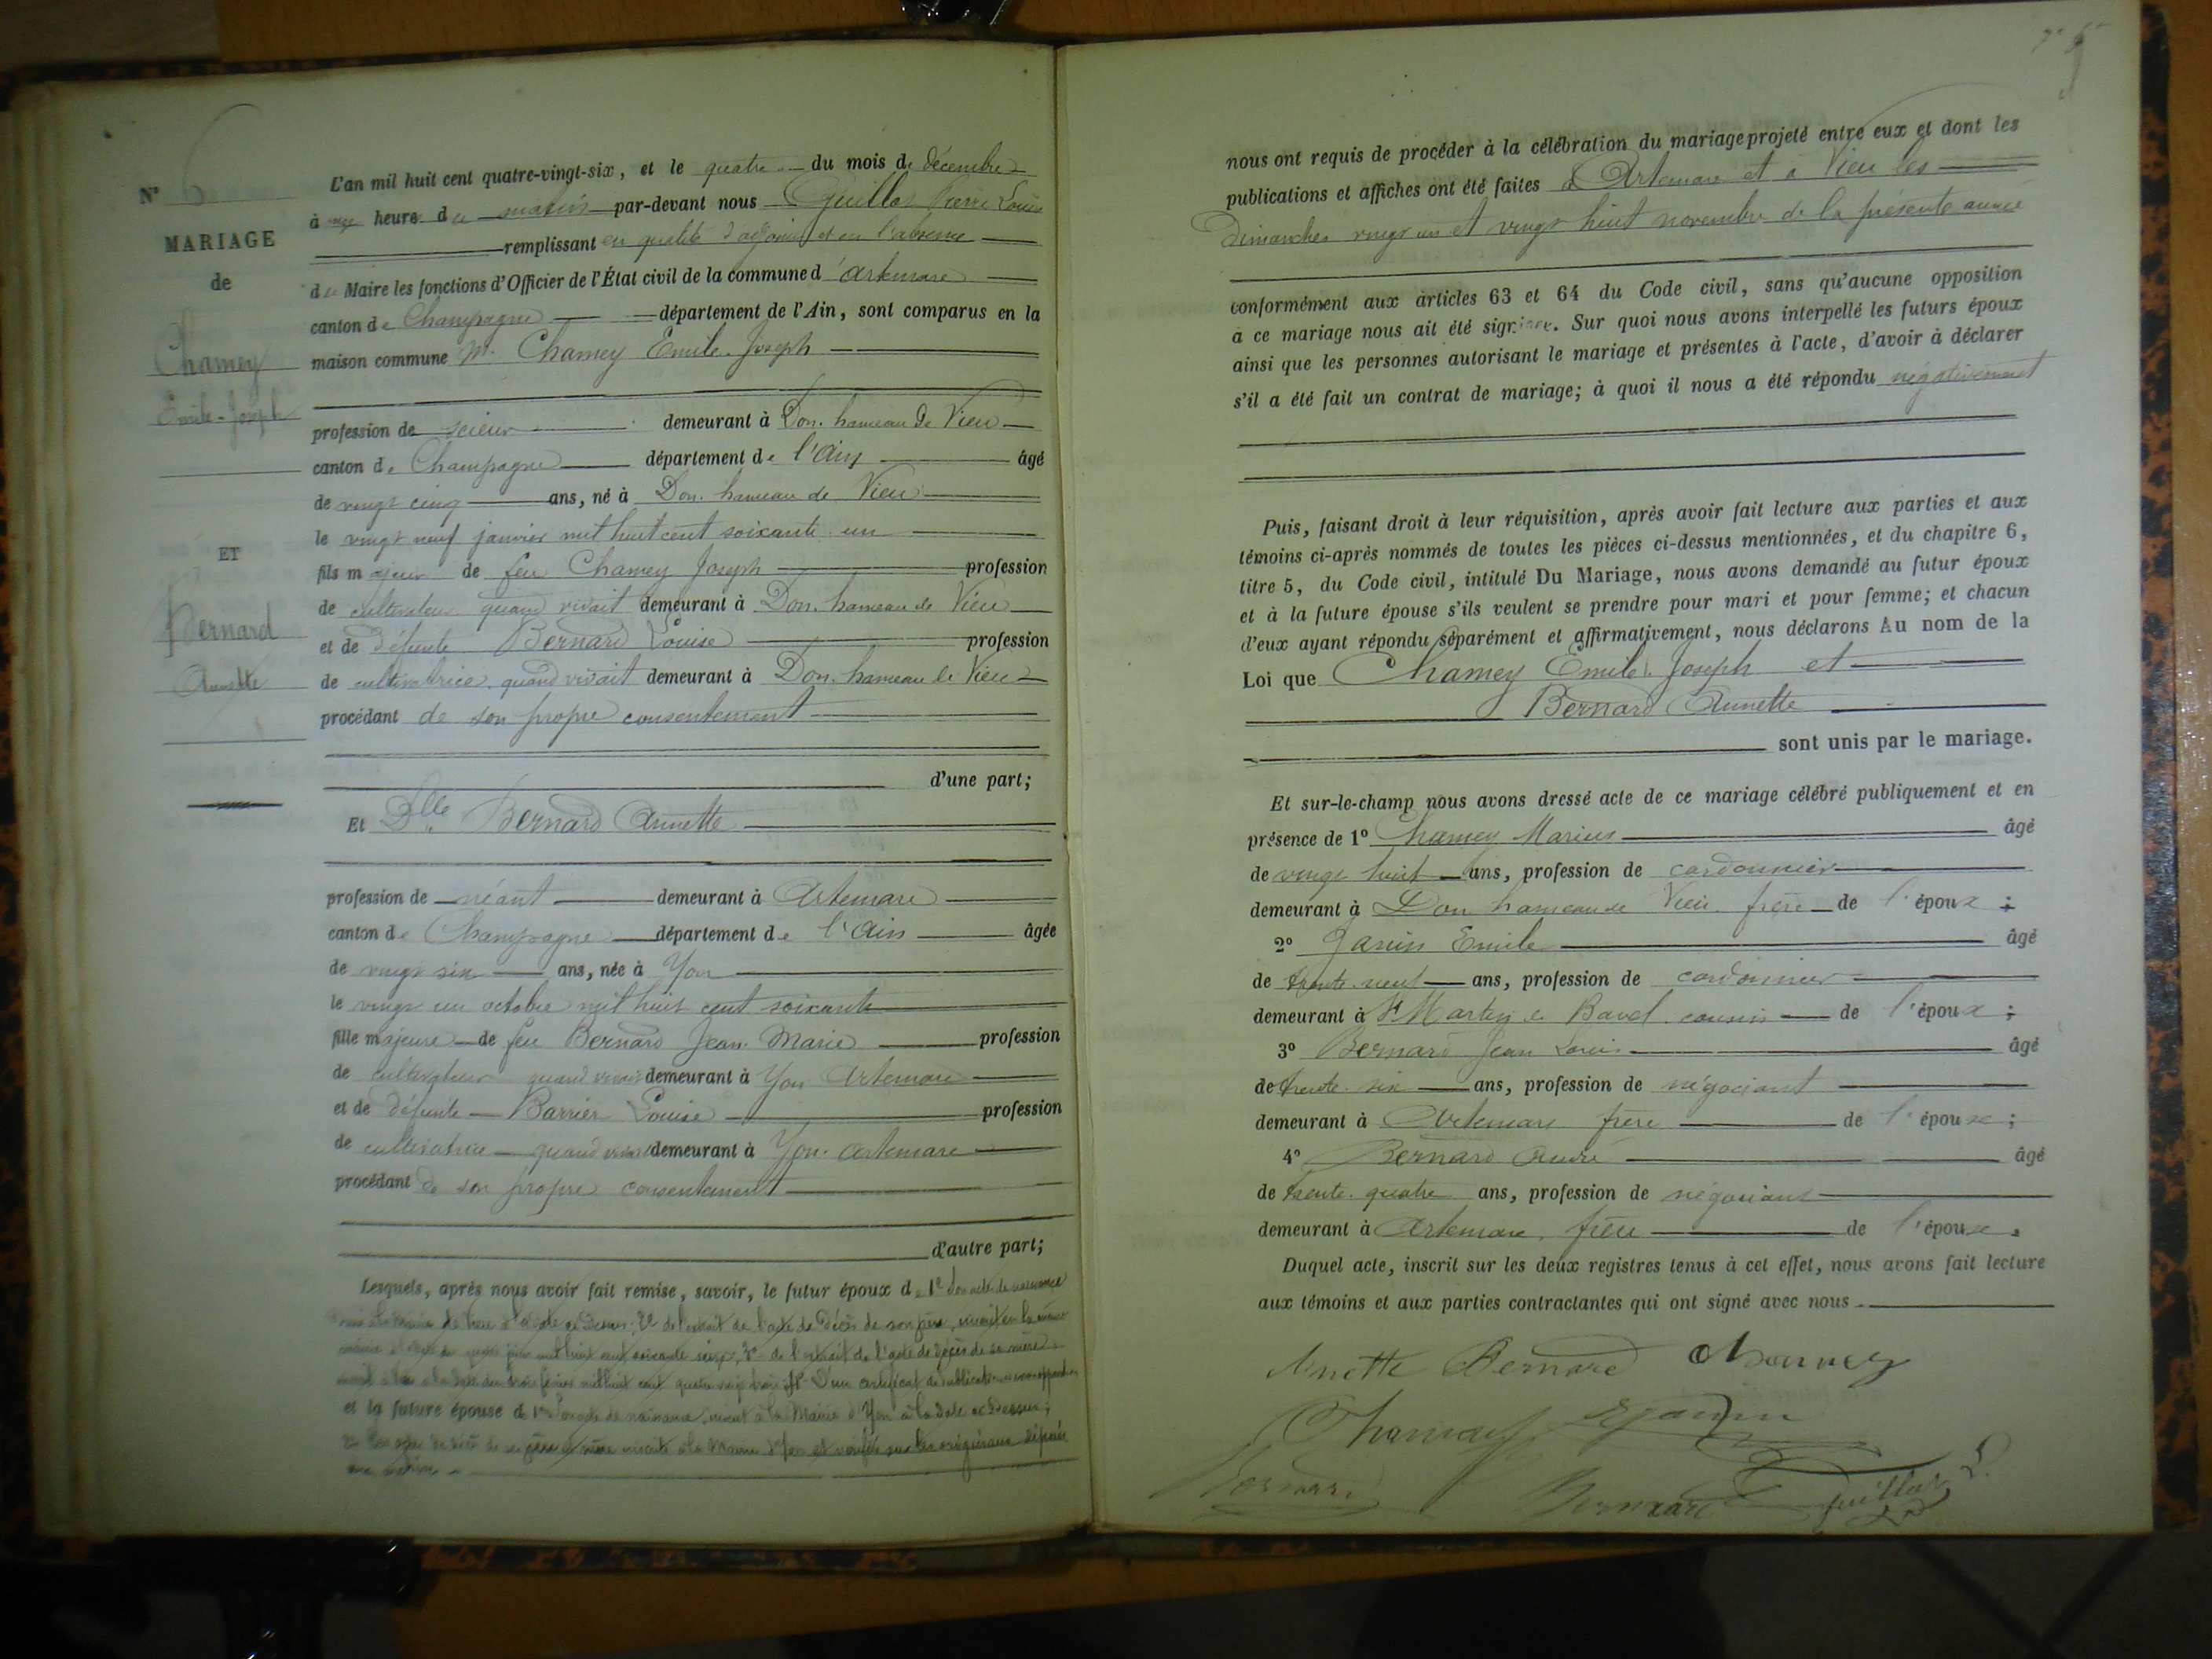 N° 6
MARIAGE
de
Chamey
Emile-Joseph
ET
Bernard
Annette
L'an mil huit cent quatre-vingt-six, et le quatre du mois de décembre
à heure du matin par-devant nous Guillot Pierre Louis
remplissant en qualité d'adjoint et en l'absence
du Maire les fonctions d'Officier de l'État civil de la commune d'Artemare
canton de Champagne département de l'Ain, sont comparus en la
maison commune Mr. Chamey Emile Joseph
profession de scieur demeurant à Don. hameau de Vieu
canton de Champagne département de l'Ain âgé
de vingt cinq ans, né à Don. hameau de Vieu
le vingt neuf janvier mil huit cent soixante un
fils majeur de feu Chamey Joseph profession
de cultivateur quand vivait demeurant à Don. hameau de Vieu
et de défunte Bernard Louise profession
de cultivatrice quand vivait demeurant à Don. hameau de Vieu
procédant de son propre consentement
d'une part;
Et Dlle Bernard Annette
profession de néant demeurant à Artemare
canton de Champagne département de l'Ain âgée
de vingt six ans, née à Yon
le vingt un octobre mil huit cent soixante
fille majeure de feu Bernard Jean Marie profession
de cultivateur quand vivait demeurant à Yon Artemare
et de défunte Barrier Louise profession
de cultivatrice quand vivait demeurant à Yon. Artemare
procédant de son propre consentement
d'autre part;
Lesquels, après nous avoir fait remise, savoir, le futur époux de 1° Son acte de naissance
à la date ci Dessus; 2° de l'extrait de l'acte de Décès de son père, inscrit en la même
mairie mil huit cent soixante 3° de l'extrait de l'acte de décès de sa mère
à la date du trois février mil huit cent quatre vingt trois 4° D'un certificat de publication
et la future épouse de 1° Son acte de naissance, inscrit à la Mairie d'Yon à la date ci Dessus;
de décès de ses père et mère inscrits à la Mairie d'Yon et vérifiés sur les originaux déposés
nous ont requis de procéder à la célébration du mariage projeté entre eux et dont les
publications et affiches ont été faites à Artemare et à Vieu les
Dimanches vingt un et vingt huit novembre de la présente année
conformément aux articles 63 et 64 du Code civil, sans qu'aucune opposition
à ce mariage nous ait été signifiée. Sur quoi nous avons interpellé les futurs époux
ainsi que les personnes autorisant le mariage et présentes à l'acte, d'avoir à déclarer
s'il a été fait un contrat de mariage; à quoi il nous a été répondu négativement
Puis, faisant droit à leur réquisition, après avoir fait lecture aux parties et aux
témoins ci-après nommés de toutes les pièces ci-dessus mentionnées, et du chapitre 6,
titre 5, du Code civil, intitulé Du Mariage, nous avons demandé au futur époux
et à la future épouse s'ils veulent se prendre pour mari et pour femme; et chacun
d'eux ayant répondu séparément et affirmativement, nous déclarons Au nom de la
Loi que Chamey Emile Joseph et
Bernard Annette
sont unis par le mariage.
Et sur-le-champ nous avons dressé acte de ce mariage célébré publiquement et en
présence de 1° Chamey Marius âgé
de vingt huit ans, profession de cordonnier
demeurant à Don hameau de Vieu frère de l'époux;
2° Janin Emile âgé
de trente neuf ans, profession de cordonnier
demeurant à St Martin de Bavel cousin de l'époux;
3° Bernard Jean Louis âgé
de trente six ans, profession de négociant
demeurant à Artemare frère de l'épouse;
4° Bernard André âgé
de trente quatre ans, profession de négociant
demeurant à Artemare, frère de l'épouse.
Duquel acte, inscrit sur les deux registres tenus à cet effet, nous avons fait lecture
aux témoins et aux parties contractantes qui ont signé avec nous.
Anette Bernard Chamey
Chamey EJanin
Bernard Bernard Guillot